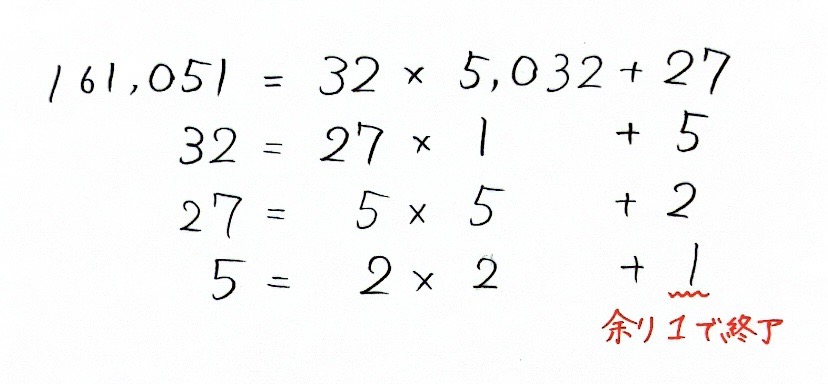 161,051 = 32 × 5,032 + 27
32 = 27 × 1 + 5
27 = 5 × 5 + 2
5 = 2 × 2 + 1
余り1で終了